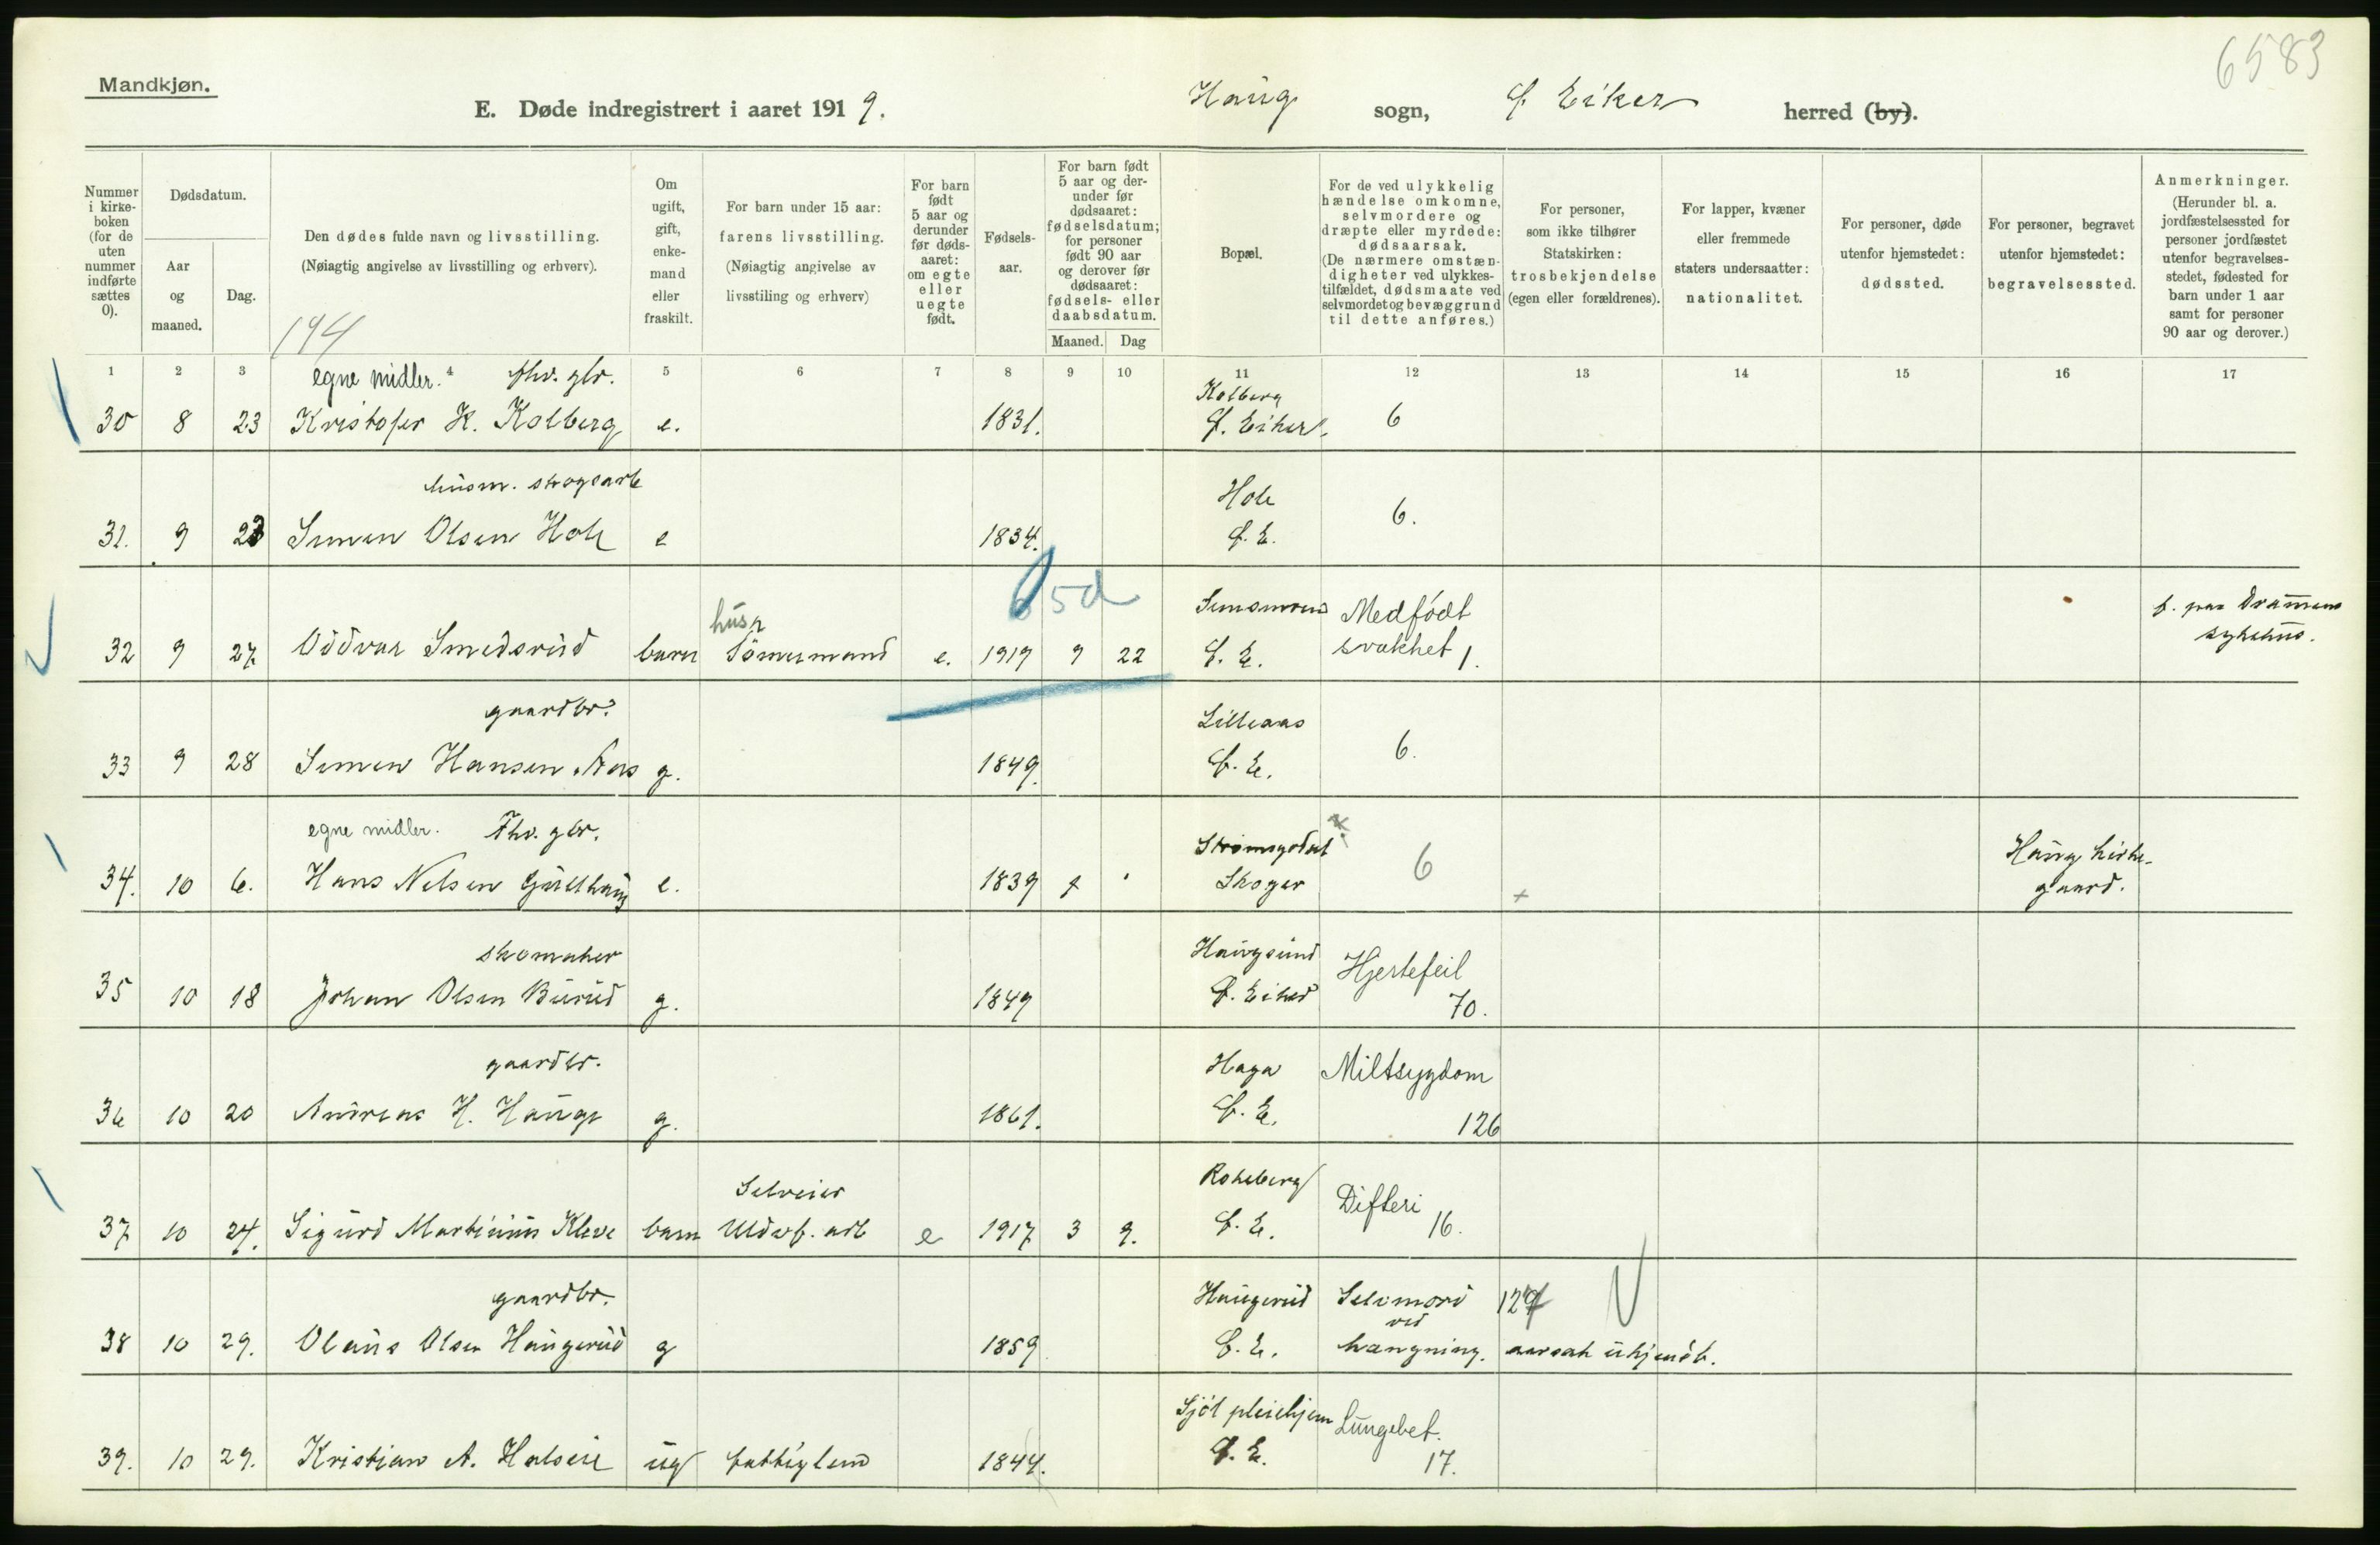 6583
Mandkjøn.
E. Døde indregistrert i aaret 1919. Haug sogn, Ø. Eiker herred (by).
Nummer i kirke-boken (for de uten nummer indførte sættes 0).
Dødsdatum.
Aar og maaned.
Dag.
Den dødes fulde navn og livsstilling.
(Nøiagtig angivelse av livsstilling og erhverv).
194
Om ugift, gift, enke-mand eller fraskilt.
For barn under 15 aar:
farens livsstilling.
(Nøiagtig angivelse av livsstiling og erhverv)
For barn født 5 aar og derunder før døds-aaret: om egte eller uegte født.
Fødsels-aar.
For barn født 5 aar og der-under før dødsaaret: fødselsdatum; for personer født 90 aar og derover før dødsaaret: fødsels- eller daabsdatum.
Maaned. Dag
Bopæl.
For de ved ulykkelig hændelse omkomne, selvmordere og dræpte eller myrdede: dødsaarsak. (De nærmere omstæn-digheter ved ulykkes-tilfældet, dødsmaate ved selvmordet og bevæggrund til dette anføres.)
For personer, som ikke tilhører Statskirken: trosbekjendelse (egen eller forældrenes).
For lapper, kvæner eller fremmede staters undersaatter: nationalitet.
For personer, døde utenfor hjemstedet: dødssted.
For personer, begravet utenfor hjemstedet: begravelsessted.
Anmerkninger.
(Herunder bl. a. jordfæstelsessted for personer jordfæstet utenfor begravelses-stedet, fødested for barn under 1 aar samt for personer 90 aar og derover.)
1 2 3 4 5 6 7 8 9 10 11 12 13 14 15 16 17
egne midler. fhv. gbr. Kolberg
30 8 23 Kristofer H. Kolberg e. 1831. Ø. Eiker. 6
husm. skogsarb Hole
31. 9 23 Simen Olsen Hole e 1834. Ø. E. 6.
5d
husm Medfödt f. paa Drammens
32 9 27. Oddvar Smedsrud barn e. 1919 9 22 Ö. E. svakhet 1. sykehus.
gaardbr. Lilleaas
33 9 28 Simen Hansen Aas g. 1849. Ö. E. 6.
egne midler. Fhv. gbr. Strömsgodset Haug kirke-
34. 10 6. Hans Nelsen Gullhaug e. 1839 Skoger 6 gaard.
skomaker Haugsund Hjertefeil
35 10 18 Johan Olsen Burud g. 1849 Ø. Eiker 70.
gaardbr. Haga Miltsygdom
36 10 20 Andreas H. Hauge g. 1861. Ö. E. 126
Selveier Difteri
37 10 24. Sigurd Martinius Kleve barn Uldvf. arb e 1917 3 9. Ö. E. 16.
gaardbr. Haugerud Selvmord 127
ved
38 10 29. Olaus Olsen Haugerud g 1859 Ö. E. hængning. aarsak ukjendt.
Sjöl pleiehjem Lungebet.
39. 10 29. Kristian A. Halseie ug fattiglem 1844. Ø. E. 17.